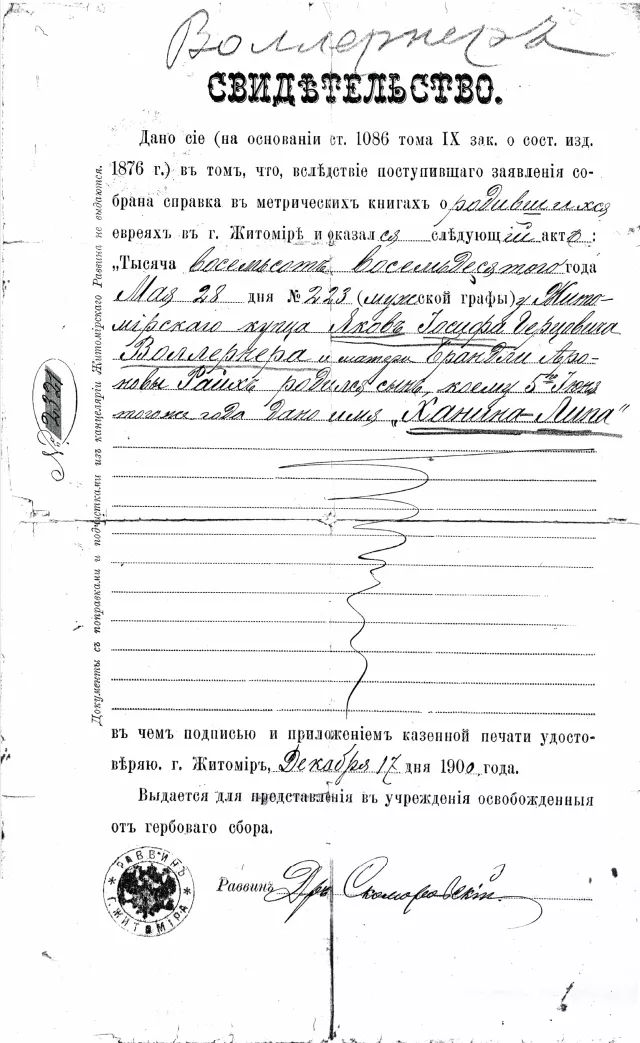 Воллернеръ
СВИДѢТЕЛЬСТВО.
Дано сіе (на основаніи ст. 1086 тома IX зак. о сост. изд.
1876 г.) въ томъ, что, вслѣдствіе поступившаго заявленія со-
брана справка въ метрическихъ книгахъ о родившихся
евреяхъ въ г. Житомірѣ и оказался слѣдующій актъ:
„Тысяча восемьсотъ восемьдесятого года
Мая 28 дня № 223 (мужской графы) у Жито-
мірскаго купца Яковъ Іосифа Герцовича
Воллернера и матери Брандли Аро-
новы Райхъ родился сынъ, коему 5го Іюня
тогоже года дано имя „Ханина-Липа"
въ чемъ подписью и приложеніемъ казенной печати удосто-
вѣряю. г. Житоміръ, Декабря 17 дня 1900 года.
Выдается для представленія въ учрежденія освобожденныя
отъ гербоваго сбора.
Раввинъ Дръ Скоморовскій
РАВВИНЪ
Г. ЖИТОМІРА
Документы съ поправками и подчистками изъ канцеляріи Житомірскаго Раввина не выдаются.
№